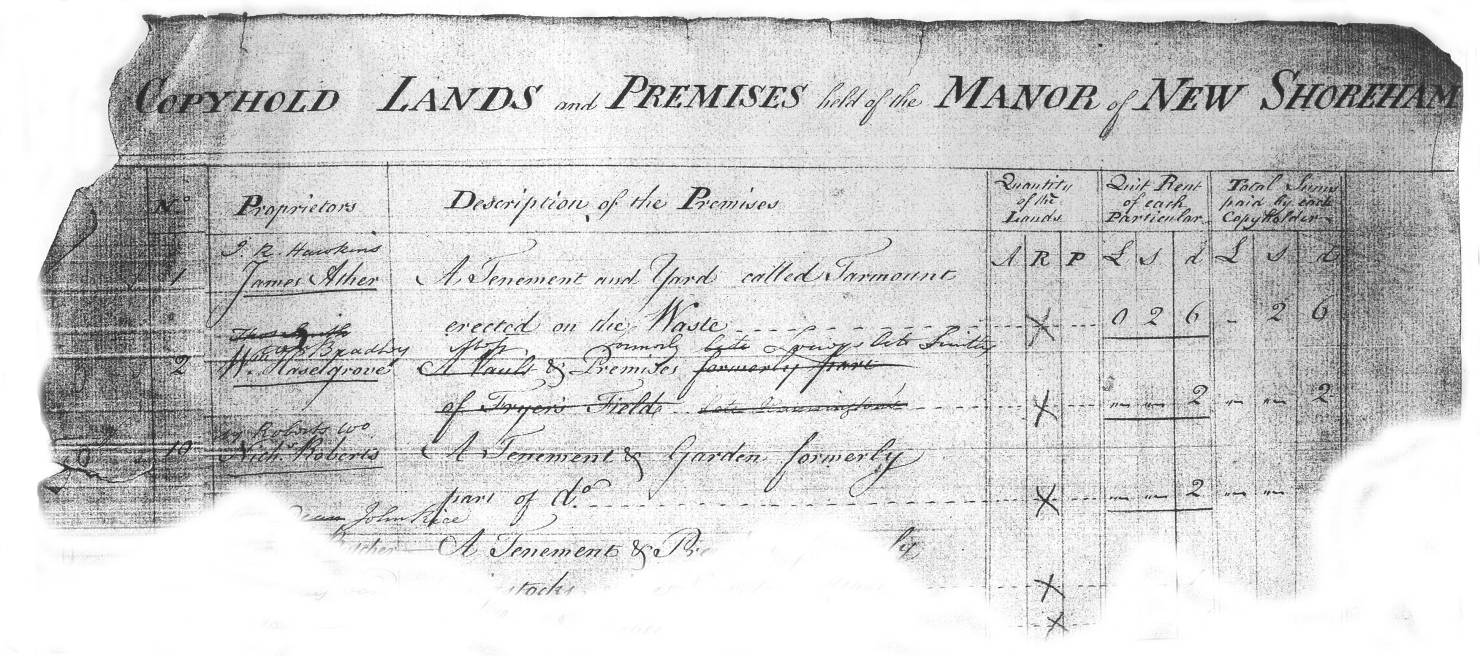 COPYHOLD LANDS and PREMISES held of the MANOR of NEW SHOREHAM
No. Proprietors Description of the Premises Quantity of the Lands Quit Rent of each Particular Total Sums paid by each Copyholder
A R P £ s d £ s d
J. R. Hawkins
1 James Ather A Tenement and Yard called Tarmount
erected on the Waste X 0 2 6 - 2 6
Bradley late late
2 Wm. Haselgrove A Vault & Premises formerly part
of Fryer's Field late X " " 2 " " 2
Roberts
10 Nich. Roberts A Tenement & Garden formerly
part of do. X " " 2 " "
John Rice
A Tenement &
stocks X
X